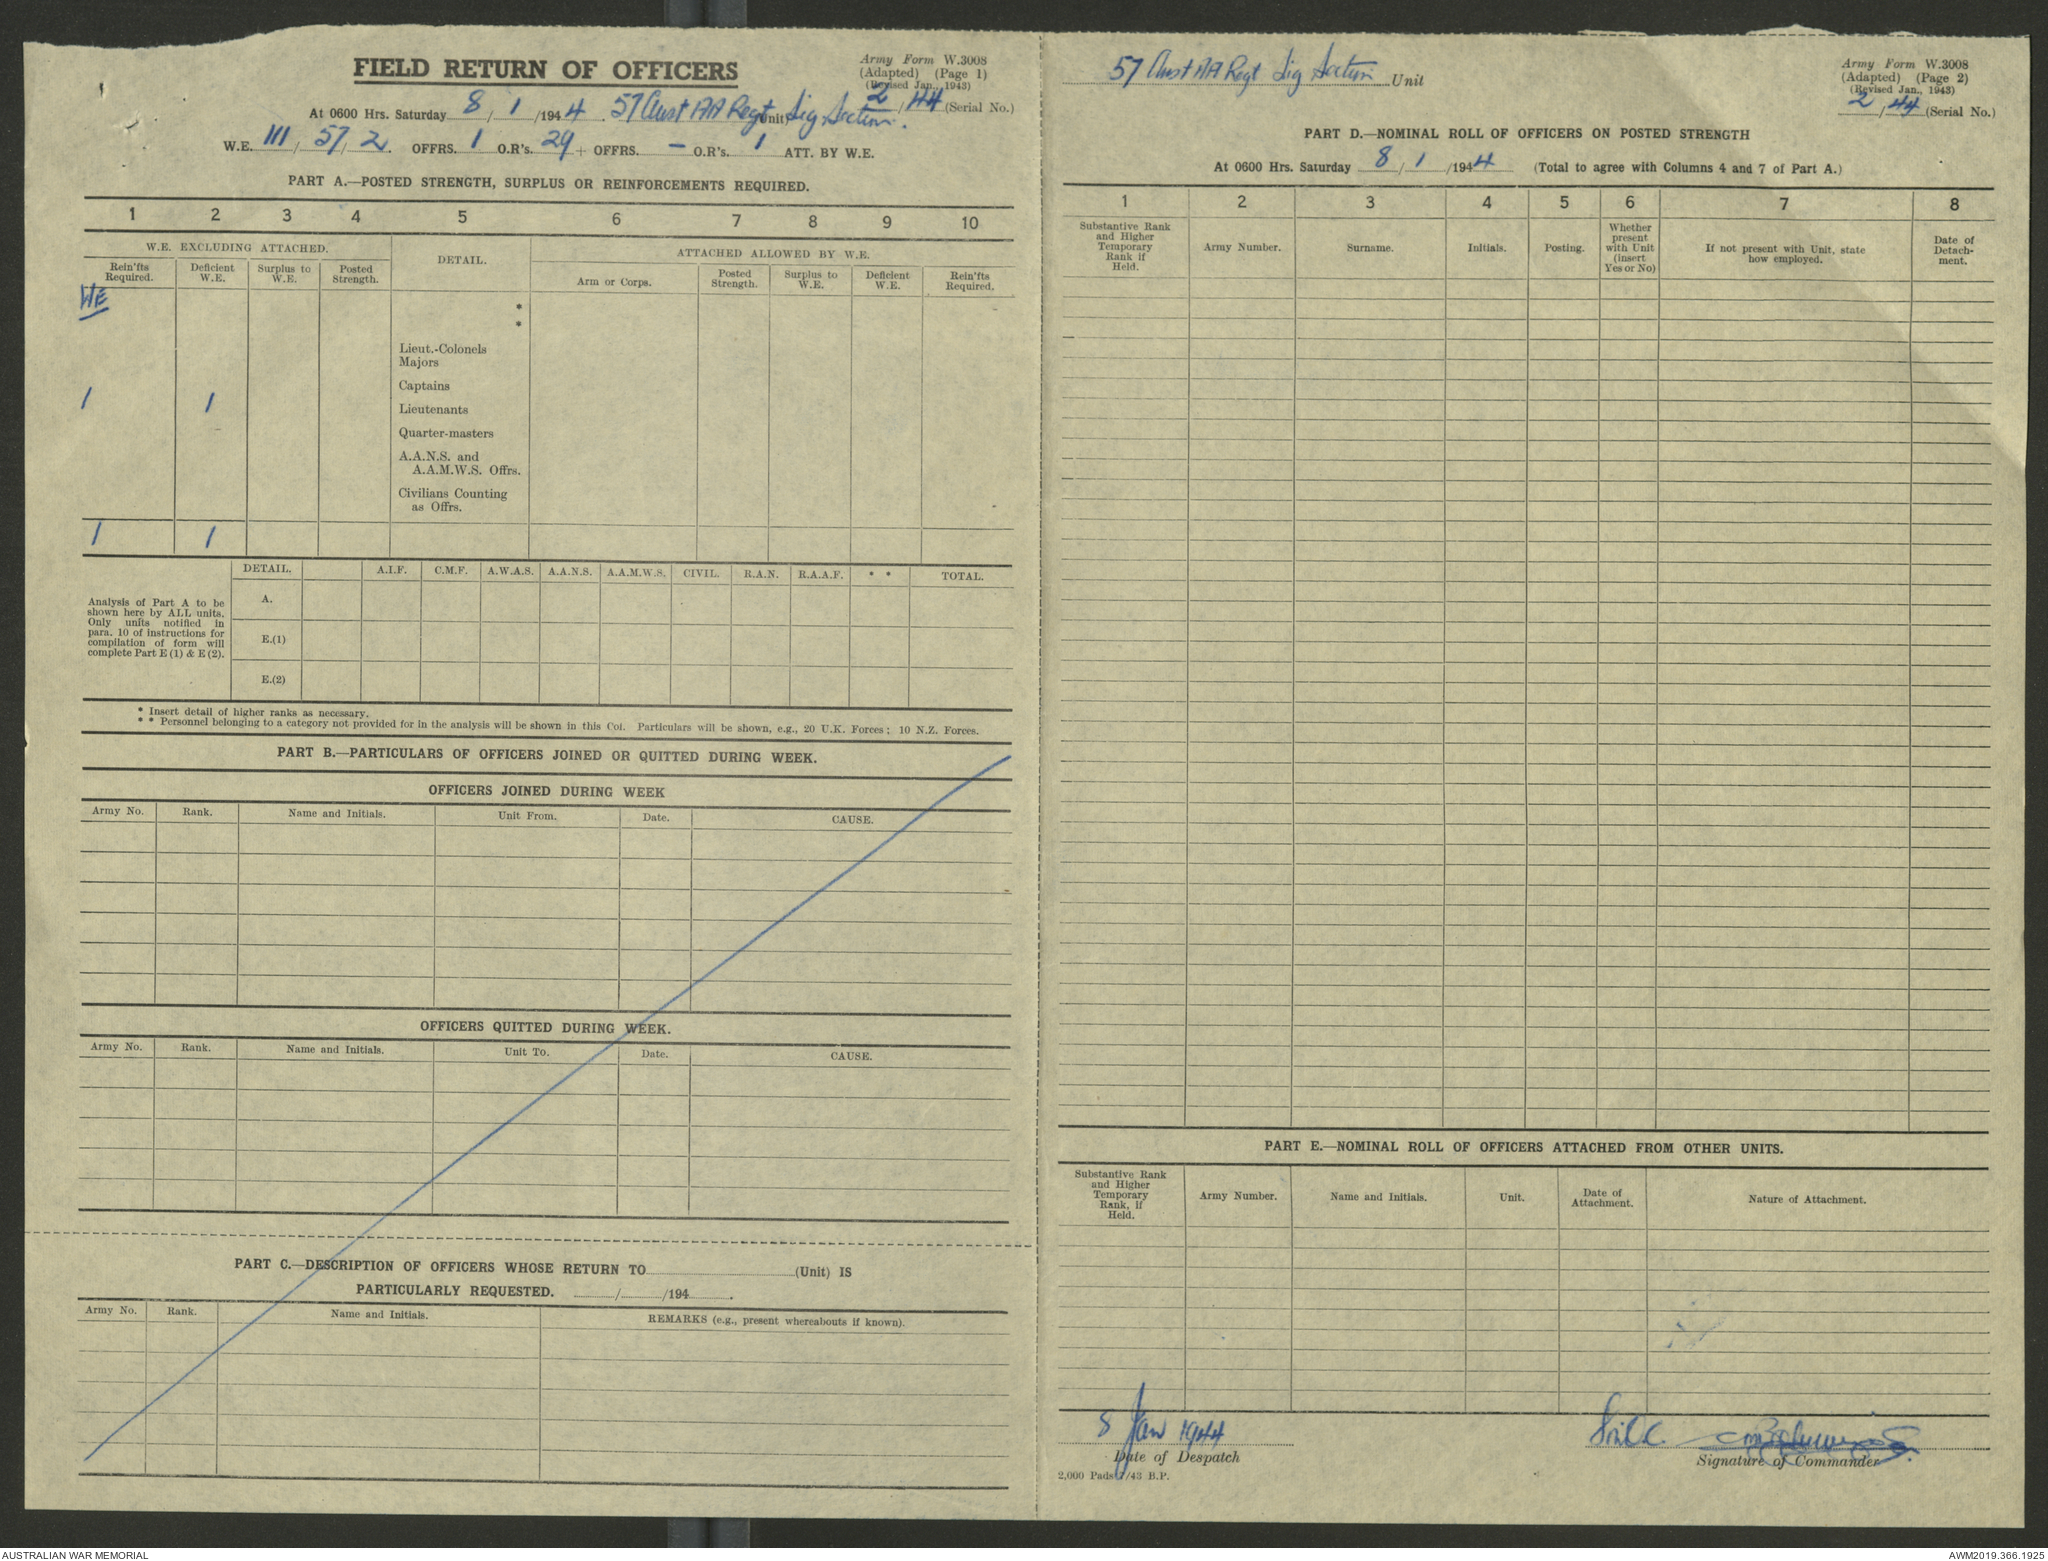 FIELD RETURN OF OFFICERS
Army Form W.3008
(Adapted) (Page 1)
(Revised Jan., 1943)
2/44 (Serial No.)
At 0600 Hrs. Saturday 8/1/1944. 57 Aust AA Regt Sig Section. Unit
W.E. 111/57/2. OFFRS. 1 O.R's. 29 + OFFRS. - O.R's. 1 ATT. BY W.E.
PART A.—POSTED STRENGTH, SURPLUS OR REINFORCEMENTS REQUIRED.
1 2 3 4 5 6 7 8 9 10
W.E. EXCLUDING ATTACHED. DETAIL. ATTACHED ALLOWED BY W.E.
Rein'fts Required. Deficient W.E. Surplus to W.E. Posted Strength. Arm or Corps. Posted Strength. Surplus to W.E. Deficient W.E. Rein'fts Required.
WE
*
*
Lieut.-Colonels
Majors
Captains
1 1 Lieutenants
Quarter-masters
A.A.N.S. and
A.A.M.W.S. Offrs.
Civilians Counting
as Offrs.
1 1
DETAIL. A.I.F. C.M.F. A.W.A.S. A.A.N.S. A.A.M.W.S. CIVIL. R.A.N. R.A.A.F. * * TOTAL.
Analysis of Part A to be
shown here by ALL units.
Only units notified in
para. 10 of instructions for
compilation of form will
complete Part E (1) & E (2).
A.
E.(1)
E.(2)
* Insert detail of higher ranks as necessary.
* * Personnel belonging to a category not provided for in the analysis will be shown in this Col. Particulars will be shown, e.g., 20 U.K. Forces; 10 N.Z. Forces.
PART B.—PARTICULARS OF OFFICERS JOINED OR QUITTED DURING WEEK.
OFFICERS JOINED DURING WEEK
Army No. Rank. Name and Initials. Unit From. Date. CAUSE.
OFFICERS QUITTED DURING WEEK.
Army No. Rank. Name and Initials. Unit To. Date. CAUSE.
PART C.—DESCRIPTION OF OFFICERS WHOSE RETURN TO (Unit) IS
PARTICULARLY REQUESTED. / /194 .
Army No. Rank. Name and Initials. REMARKS (e.g., present whereabouts if known).
57 Aust AA Regt Sig Section Unit
Army Form W.3008
(Adapted) (Page 2)
(Revised Jan., 1943)
2/44 (Serial No.)
PART D.—NOMINAL ROLL OF OFFICERS ON POSTED STRENGTH
At 0600 Hrs. Saturday 8/1/1944 (Total to agree with Columns 4 and 7 of Part A.)
1 2 3 4 5 6 7 8
Substantive Rank and Higher Temporary Rank if Held. Army Number. Surname. Initials. Posting. Whether present with Unit (insert Yes or No) If not present with Unit, state how employed. Date of Detach-ment.
PART E.—NOMINAL ROLL OF OFFICERS ATTACHED FROM OTHER UNITS.
Substantive Rank and Higher Temporary Rank, if Held. Army Number. Name and Initials. Unit. Date of Attachment. Nature of Attachment.
8 Jan 1944
Date of Despatch
Signature of Commander
2,000 Pads 7/43 B.P.
AUSTRALIAN WAR MEMORIAL
AWM2019.366.1925